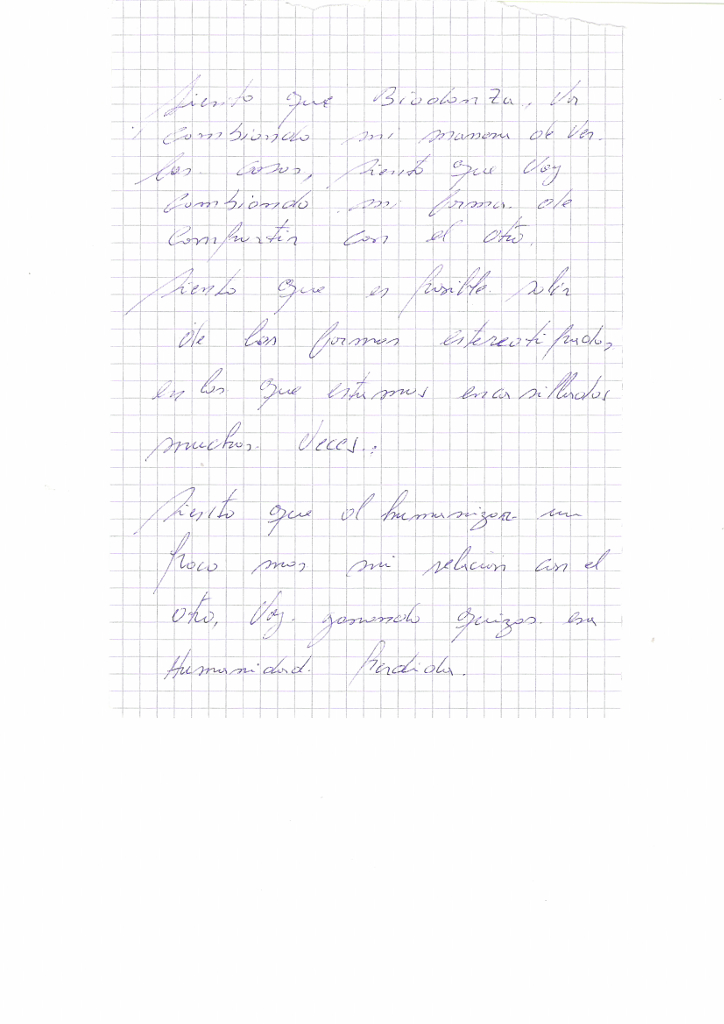 Siento que Biodanza, va
cambiando mi manera de ver
las cosas, siento que voy
cambiando mi forma de
compartir con el otro.
Siento que es posible salir
de las formas estereotipadas,
en las que estamos encasillados
muchas veces.
Siento que al humanizar un
poco mas mi relacion con el
otro, voy ganando quizas esa
Humanidad perdida.